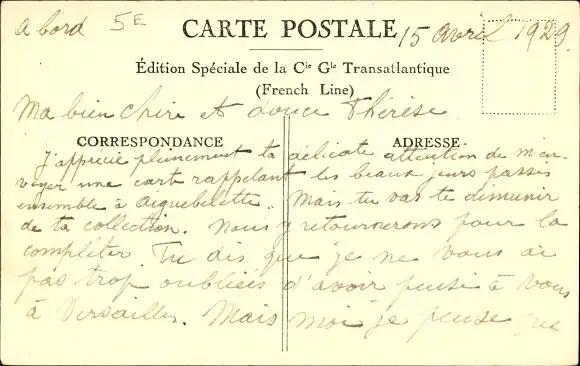 a bord 5E CARTE POSTALE 15 avril 1929.
Édition Spéciale de la Cie Gle Transatlantique
(French Line)
Ma bien chère et douce Thérèse
CORRESPONDANCE ADRESSE
J'apprecie pleinement ta délicate attention de m'en-
voyer une carte rappelant les beaux jours passés
ensemble à Aiguebelette. Mais tu vas te dimunir
de ta collection. Nous y retournerons pour la
compléter. Tu dis que je ne vous ai
pas trop oubliées d'avoir pensé à vous
à Versailles. Mais moi je pense que